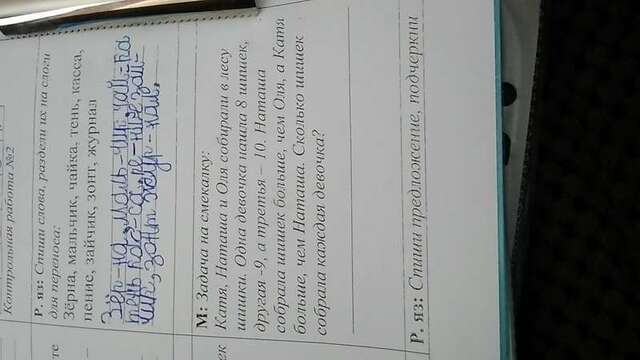 Контрольная работа №2
Р. яз: Спиши слова, раздели их на слоги
для переноса:
те
Зёрна, мальчик, чайка, тень, касса,
пение, зайчик, зонт, журнал
Зёр-на, маль-чик, чай-ка
тень кас-са, пе-ние зай-
чик, зонт жур-нал.
М: Задача на смекалку:
ек
Катя, Наташа и Оля собирали в лесу
шишки. Одна девочка нашла 8 шишек,
другая -9, а третья – 10. Наташа
собрала шишек больше, чем Оля, а Катя
больше, чем Наташа. Сколько шишек
собрала каждая девочка?
Р. яз: Спиши предложение, подчеркни